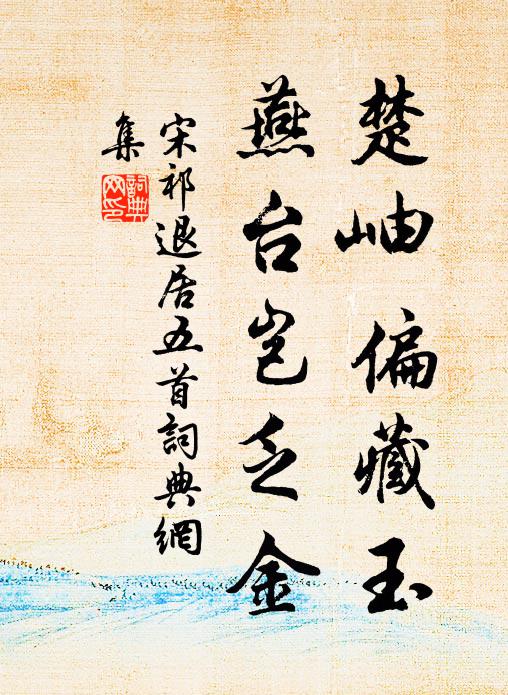 楚岫偏藏玉
燕台岂乏金
宋祁退居五首詞典網
集
詞典網印